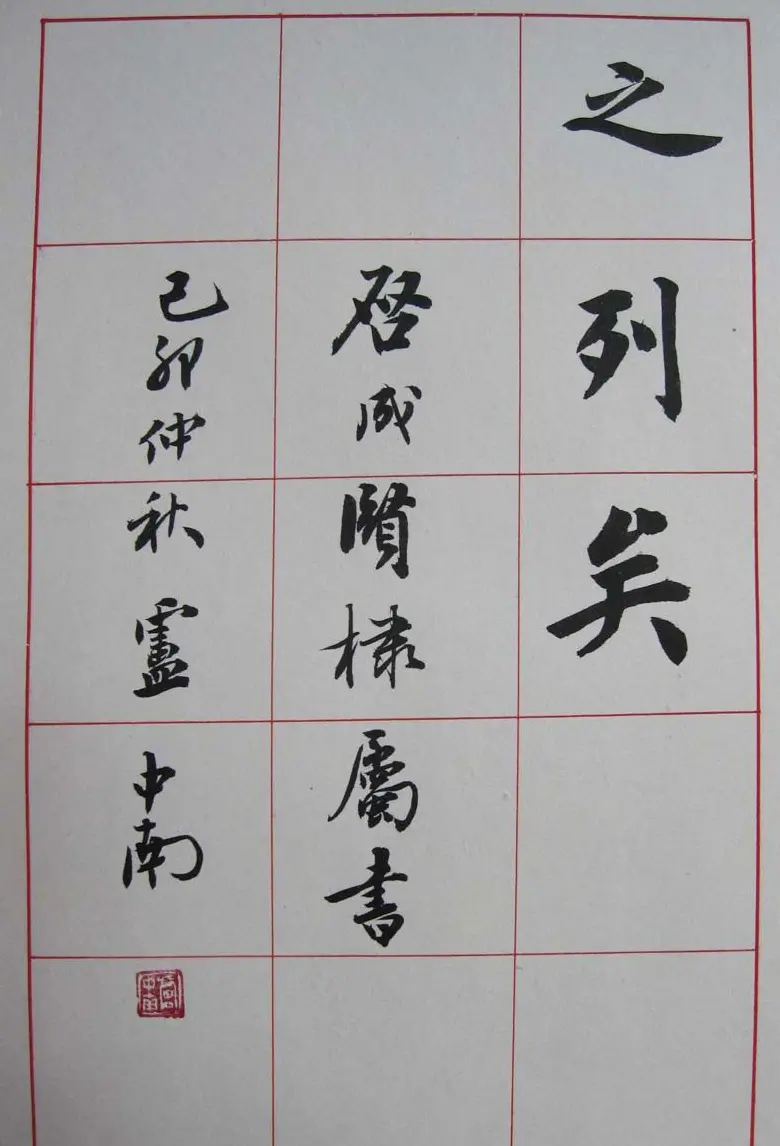 之列矣
啓成賢棣屬書
己卯仲秋盧中南